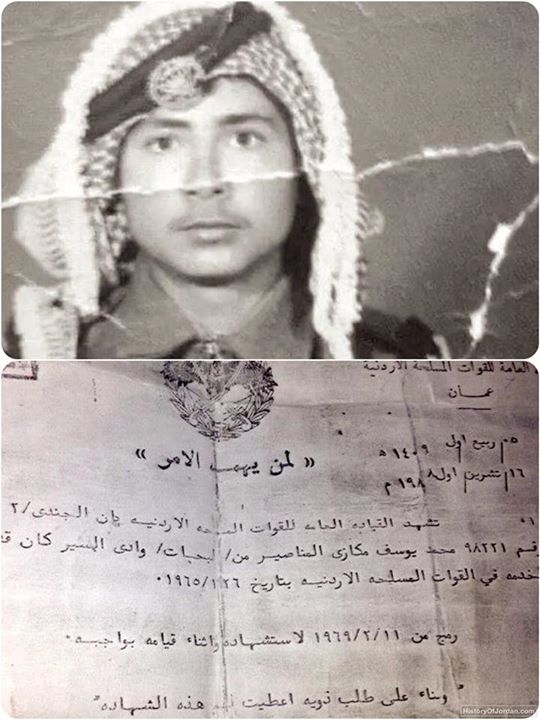 العامة للقوات المسلحة الاردنية
عمان
٠٥ ربيع اول ١٤٠٩ ه
١٦ تشرين اول ١٩٨٨ م
« لمن يهمه الامر »
٠١ تشهد القياده العامه للقوات المسلحه الاردنيه بان الجندي/٢
رقم ٩٨٢٢١ محمد يوسف مكازى المناصير من/ وادى السير كان
لخدمه في القوات المسلحه الاردنيه بتاريخ ١٩٦٥/١٢٦٠
رمج من ١٩٦٩/٢/١١ لاستشهاده واثناء قيامه بواجبه٠
وبناء على طلب ذويه اعطيت هذه الشهاده
HistoryOfJordan.com